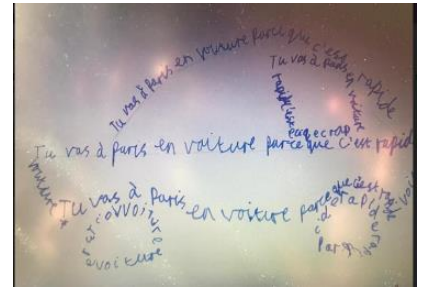 Tu vas à Paris en voiture parce que c'est rapide
Tu vas à Paris en voiture
parce que c'est rapide
Tu vas à Paris en voiture parce que c'est rapid
voiture
Tu vas à Paris en voiture parce que c'est rapide
voiture
voiture